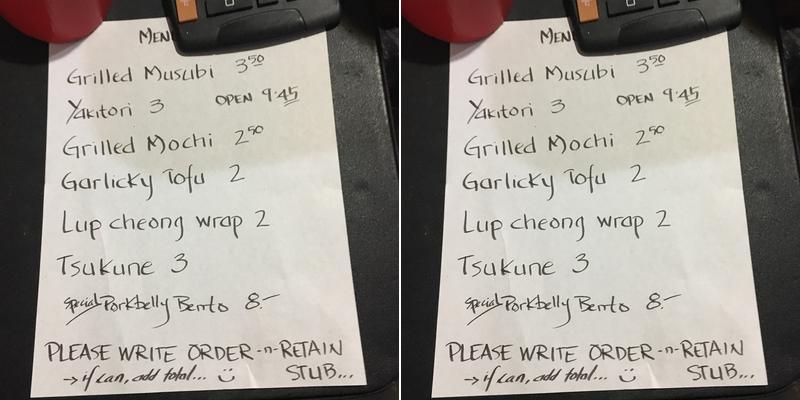 MEN
Grilled Musubi 3⁵⁰
Yakitori 3 OPEN 9:45
Grilled Mochi 2⁵⁰
Garlicky Tofu 2
Lup cheong wrap 2
Tsukune 3
Special Porkbelly Bento 8.-
PLEASE WRITE ORDER -n- RETAIN
→ if can, add total... STUB...
MEN
Grilled Musubi 3⁵⁰
Yakitori 3 OPEN 9:45
Grilled Mochi 2⁵⁰
Garlicky Tofu 2
Lup cheong wrap 2
Tsukune 3
Special Porkbelly Bento 8.-
PLEASE WRITE ORDER -n- RETAIN
→ if can, add total... STUB...